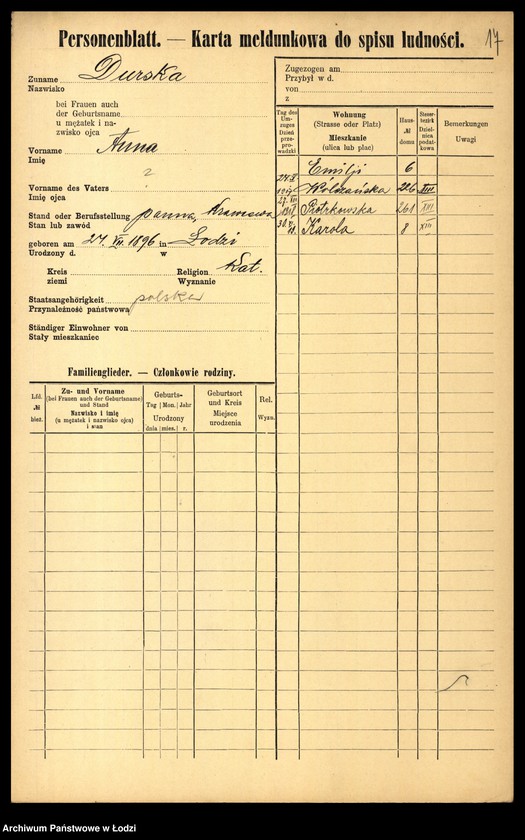 Personenblatt. — Karta meldunkowa do spisu ludności.
17
Zuname Durska
Nazwisko
bei Frauen auch
der Geburtsname
u mężatek i na-
zwisko ojca
Vorname Anna
Imię
2
Vorname des Vaters
Imię ojca
Stand oder Berufsstellung panna,
Stan lub zawód
geboren am 27. VII. 1896 in Lodzi
Urodzony d. w
Kreis Religion Kat.
ziemi Wyznanie
Staatsangehörigkeit polska
Przynależność państwowa
Ständiger Einwohner von
Stały mieszkaniec
Familienglieder. — Członkowie rodziny.
Lfd. № bież.
Zu- und Vorname
(bei Frauen auch der Geburtsname)
und Stand
Nazwisko i imię
(u mężatek i nazwisko ojca)
i stan
Geburts-
Tag Mon. Jahr
Urodzony
dnia mies. r.
Geburtsort
und Kreis
Miejsce
urodzenia
Rel.
Wyzn.
Zugezogen am
Przybył w d.
von
z
Tag des
Um-
zuges
Dzień
prze-
prowadzki
Wohnung
(Strasse oder Platz)
Mieszkanie
(ulica lub plac)
Haus-
№
domu
Steuer-
bezirk
Dzielnica
podatkowa
Bemerkungen
Uwagi
Emilji 6
1917 Wolczańska 226 XIII
Piotrkowska 261 XIII
Karola 8 XIII
Archiwum Państwowe w Łodzi